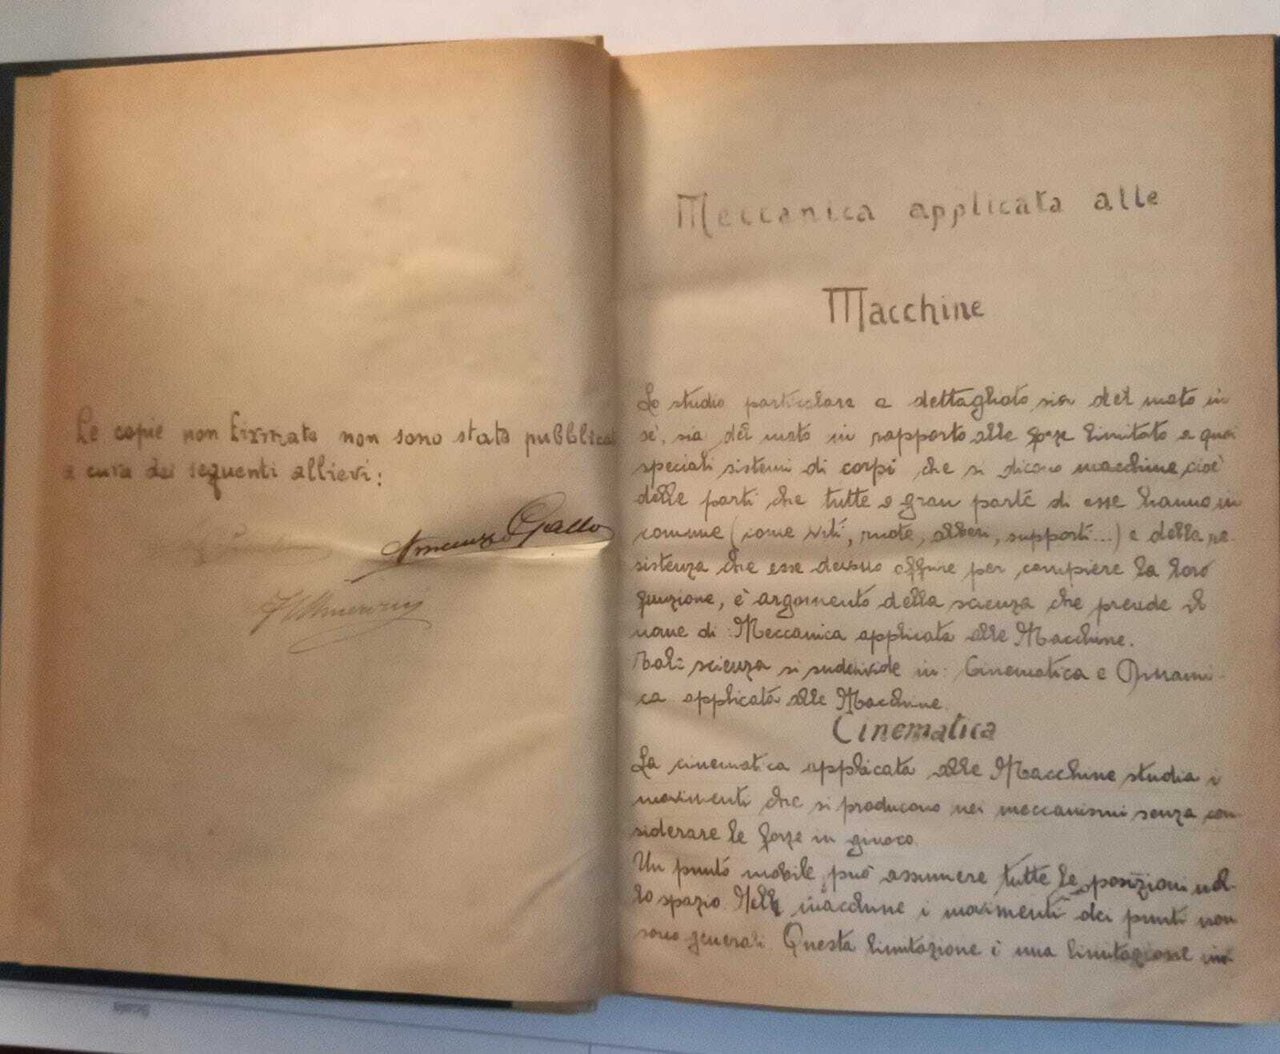 Le copie non firmate non sono state pubblicat
a cura dei seguenti allievi:
Gallo
Meccanica applicata alle
Macchine
Lo studio particolare e dettagliato sia del moto in
sè, sia del moto in rapporto alle forze limitato a quei
speciali sistemi di corpi che si dicono macchine cioè
delle parti che tutte o gran parte di esse hanno in
comune (come viti, ruote, alberi, supporti...) e della re
sistenza che esse devono offrire per compiere la loro
funzione, è argomento della scienza che prende il
nome di Meccanica applicata alle Macchine.
Tale scienza si suddivide in: Cinematica e Dinami
ca applicata alle Macchine.
Cinematica
La cinematica applicata alle Macchine studia i
movimenti che si producono nei meccanismi senza con
siderare le forze in giuoco.
Un punto mobile può assumere tutte le posizioni nel
lo spazio. Nelle macchine i movimenti dei punti non
sono generali. Questa limitazione è una limitazione